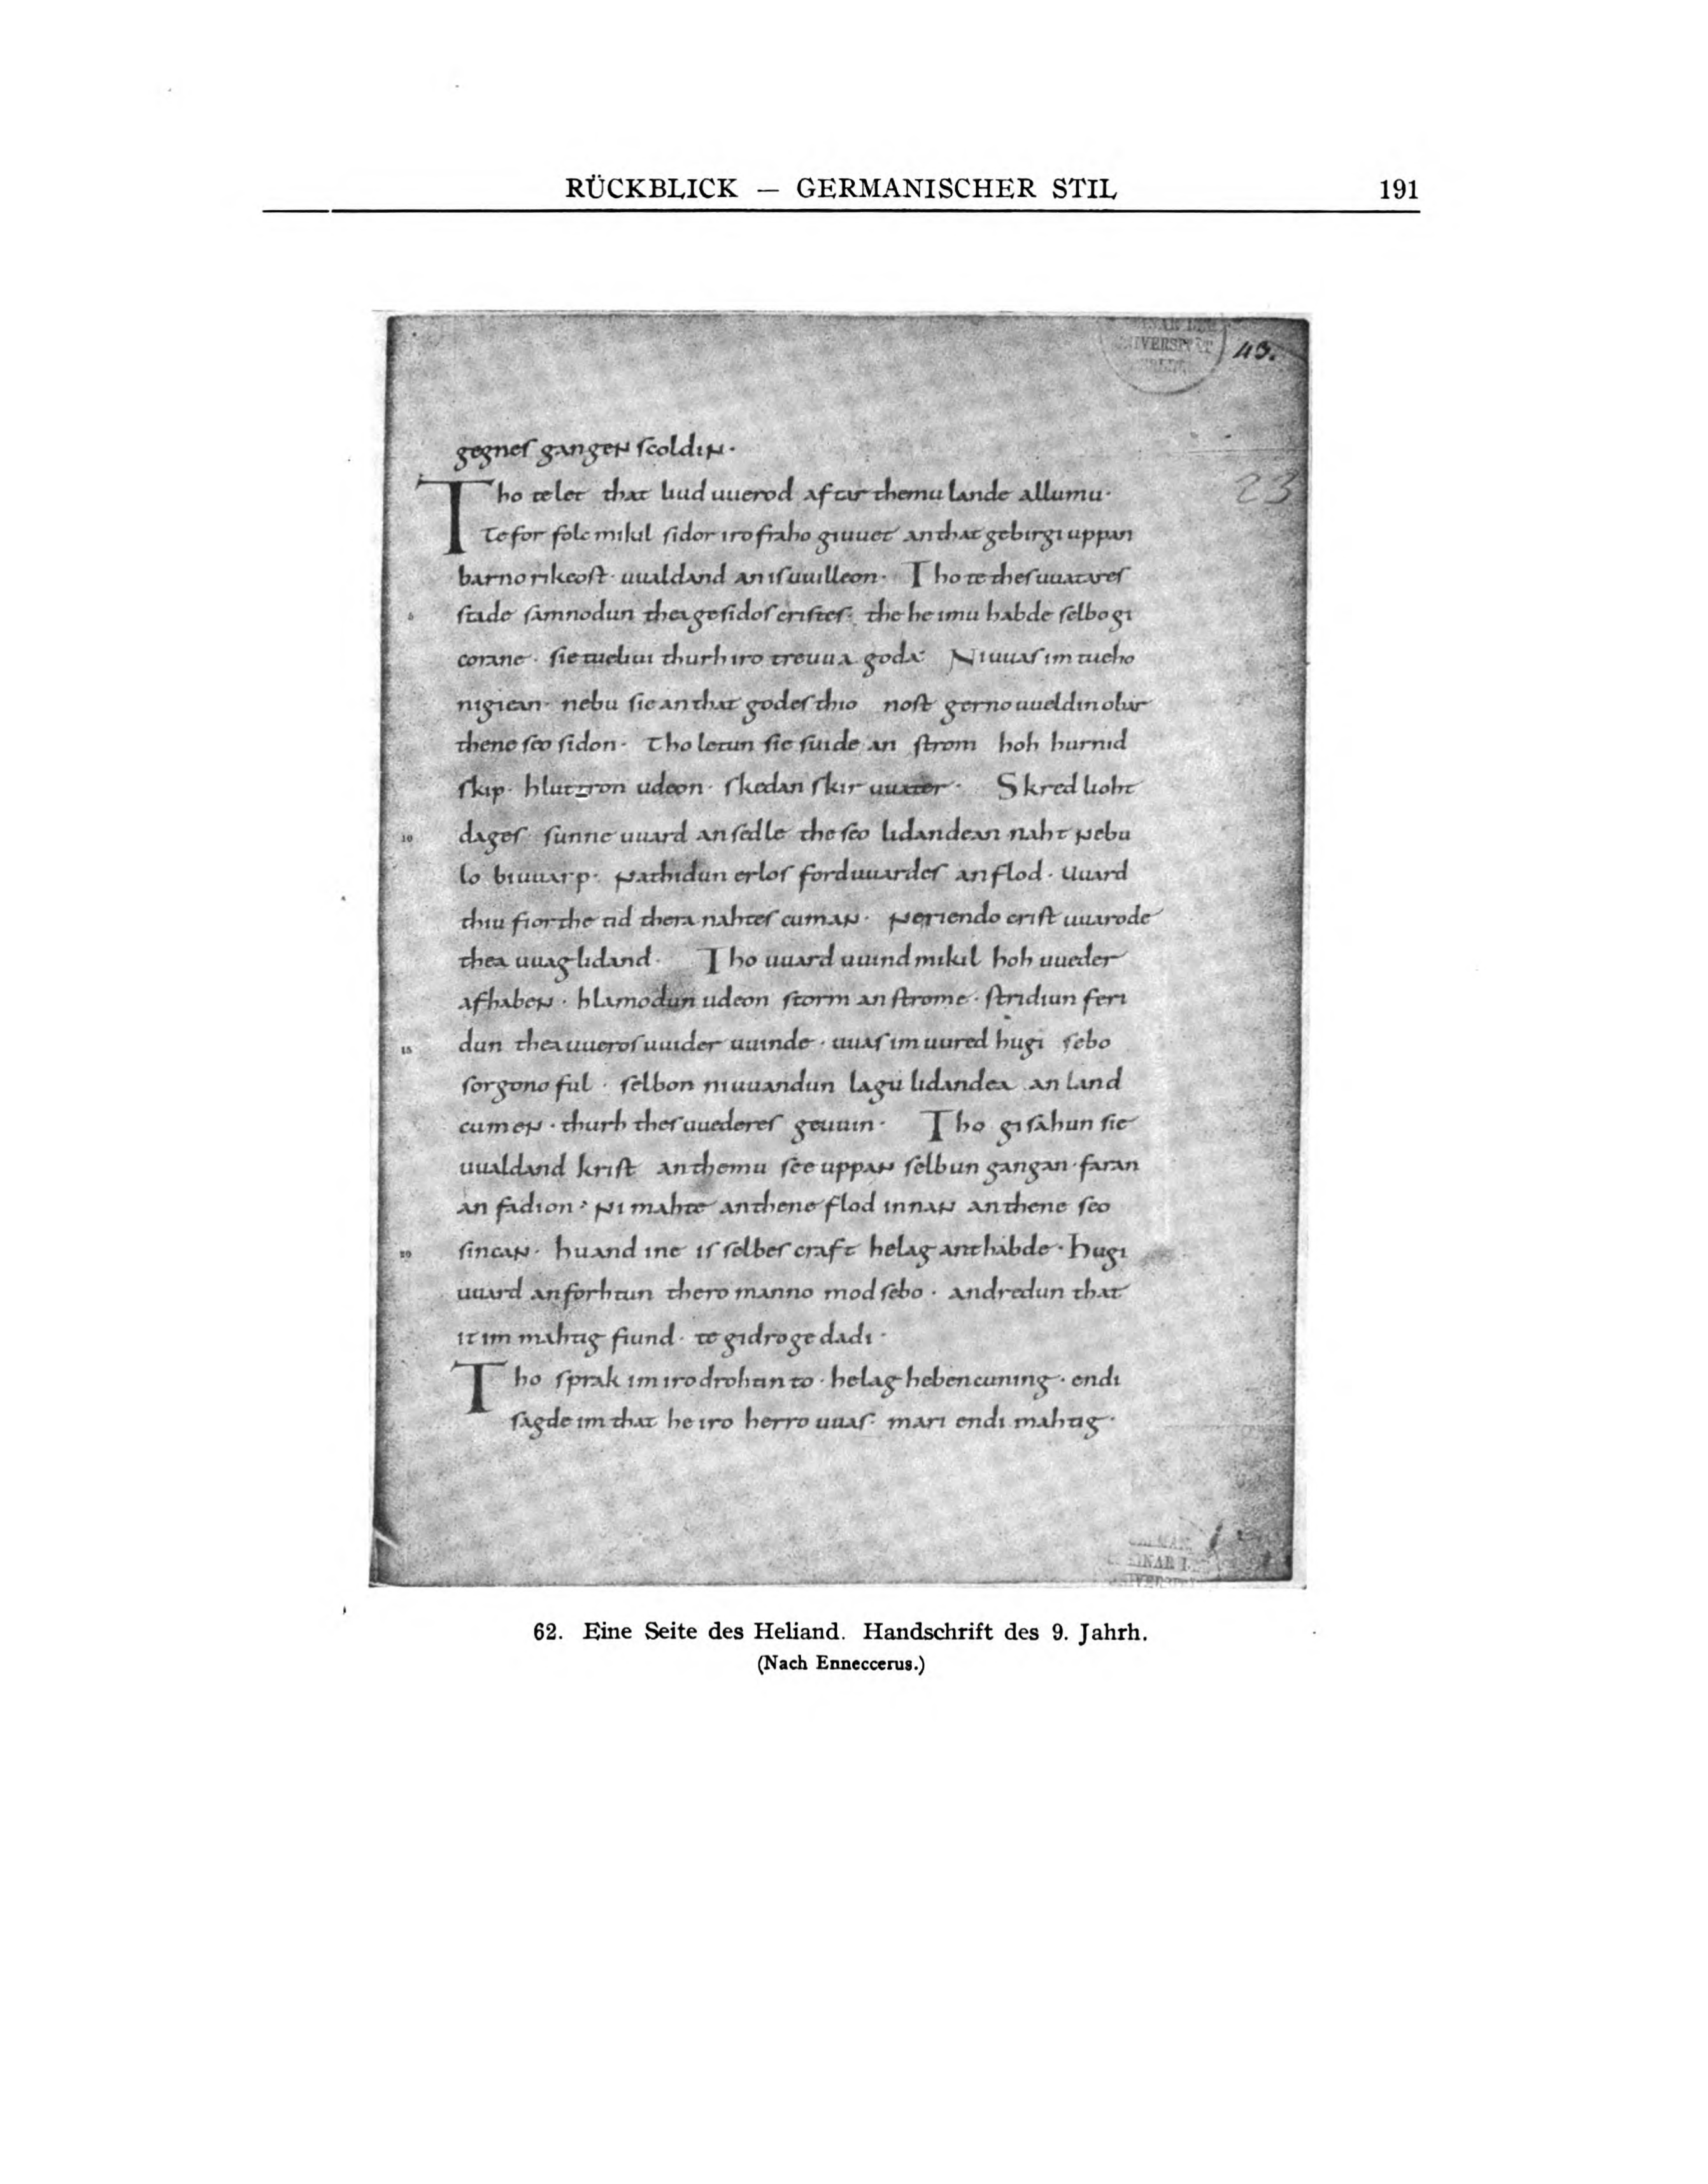 RÜCKBLICK — GERMANISCHER STIL 191
43.
gegnes gangen scoldin·
23
Tho telet that liud uuerod aftar themu lande allumu·
Te for folc mikil sidor iro fraho giuuet an that gebirgi uppan
barno rikeost· uualdand an is uuilleon· Tho te thes uuatares
5 stade samnodun thea gesidos cristes· the he imu habde selbo gi
corane· sie tueliui thurh iro treuua goda· Ni uuas im tueho
nigiean· nebu sie an that godes thio nost gerno uueldin obar
thene seo sidon· Tho letun sie suide an strom hoh hurnid
skip· hluttron udeon· skedan skir uuater· Skred lioht
10 dages sunne uuard an sedle the seo lidandean naht nebu
lo biuuarp· nathidun erlos forduuardes an flod· Uuard
thiu fiorthe tid thera nahtes cuman· neriendo crist uuarode
thea uuag lidand· Tho uuard uuind mikil hoh uueder
afhaben· hlamodun udeon storm an strome· stridiun feri
15 dun thea uueros uuider uuinde· uuas im uured hugi sebo
sorgono ful· selbon ni uuandun lagu lidandea an land
cumen· thurh thes uuederes geuuin· Tho gisahun sie
uualdand krist an themu see uppan selbun gangan· faran
an fadion· ni mahte an thene flod innan an thene seo
20 sincan· huand ine is selbes craft helag anthabde· hugi
uuard an forhtun thero manno mod sebo· andredun that
it im mahtig fiund· te gidroge dadi·
Tho sprak im iro drohtin to· helag heben cuning· endi
sagde im that he iro herro uuas· mari endi mahtig·
62. Eine Seite des Heliand. Handschrift des 9. Jahrh.
(Nach Enneccerus.)